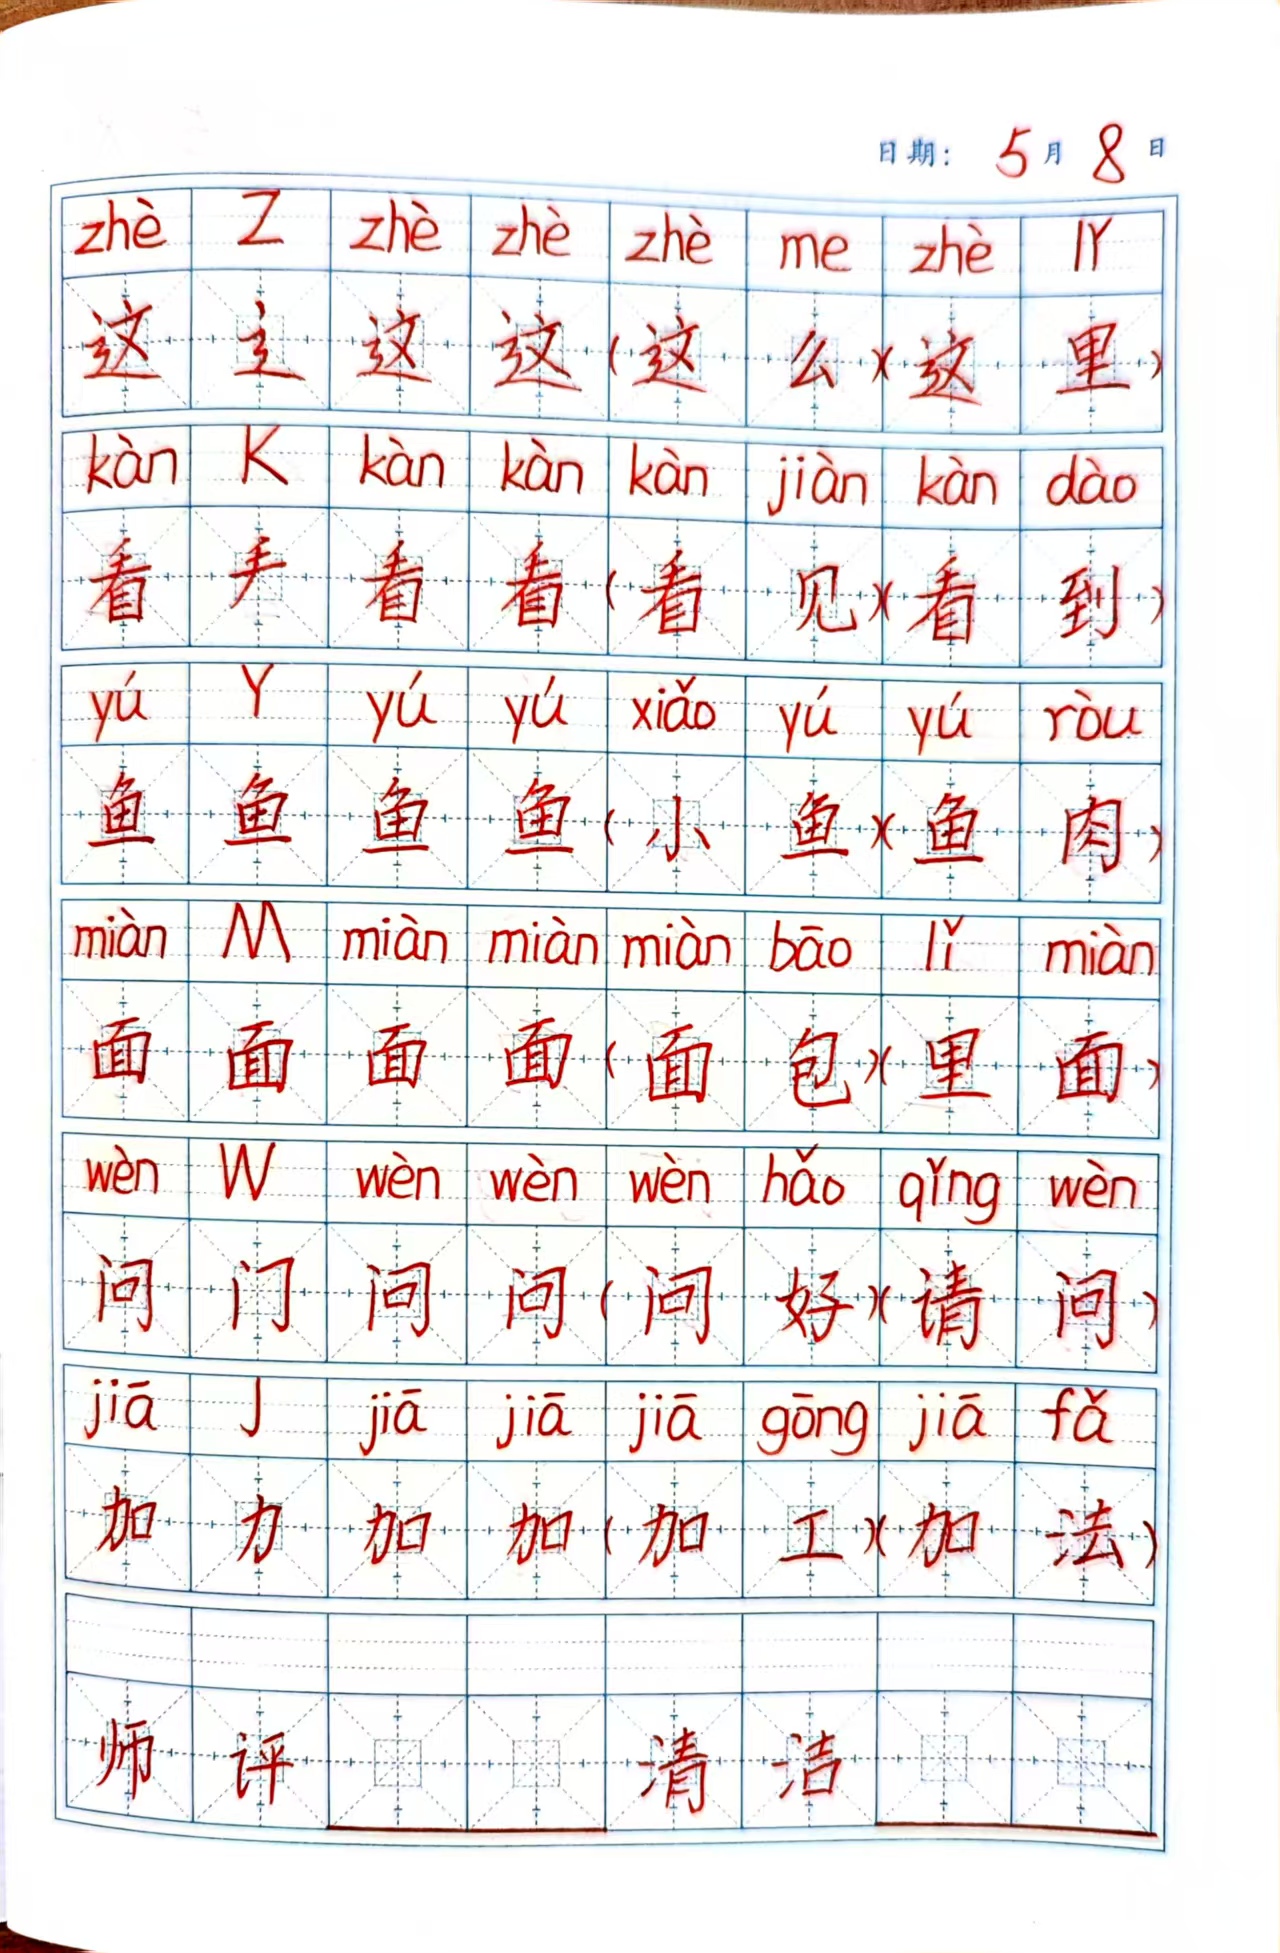 日期： 5月 8日
zhè Z zhè zhè zhè me zhè lǐ
这 辶 这 这 (这 么)(这 里)
kàn K kàn kàn kàn jiàn kàn dào
看 龵 看 看 (看 见)(看 到)
yú Y yú yú xiǎo yú yú ròu
鱼 鱼 鱼 鱼 (小 鱼)(鱼 肉)
miàn M miàn miàn miàn bāo lǐ miàn
面 面 面 面 (面 包)(里 面)
wèn W wèn wèn wèn hǎo qǐng wèn
问 门 问 问 (问 好)(请 问)
jiā J jiā jiā jiā gōng jiā fǎ
加 力 加 加 (加 工)(加 法)
师 评 清 洁